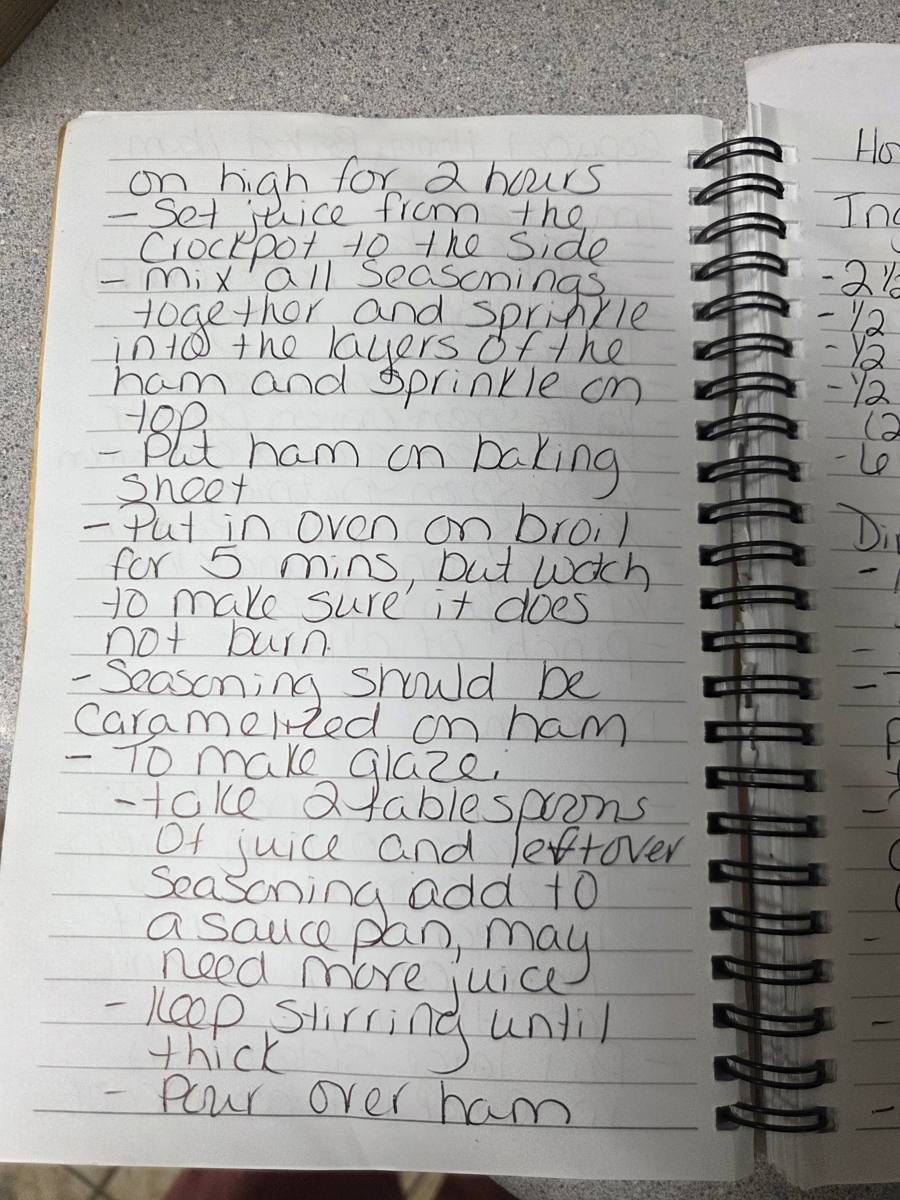 on high for 2 hours
- Set juice from the
Crockpot to the side
- mix all seasonings
together and sprinkle
into the layers of the
ham and sprinkle on
top
- Put ham on baking
sheet
- Put in oven on broil
for 5 mins, but watch
to make sure it does
not burn.
- Seasoning should be
caramelized on ham
- To make glaze,
- take 2 tablespoons
of juice and leftover
seasoning add to
a sauce pan, may
need more juice
- Keep stirring until
thick
- Pour over ham
Ho
Ing
- 2 1/2
- 1/2
- 1/2
- 1/2
(2
- 6
Dir